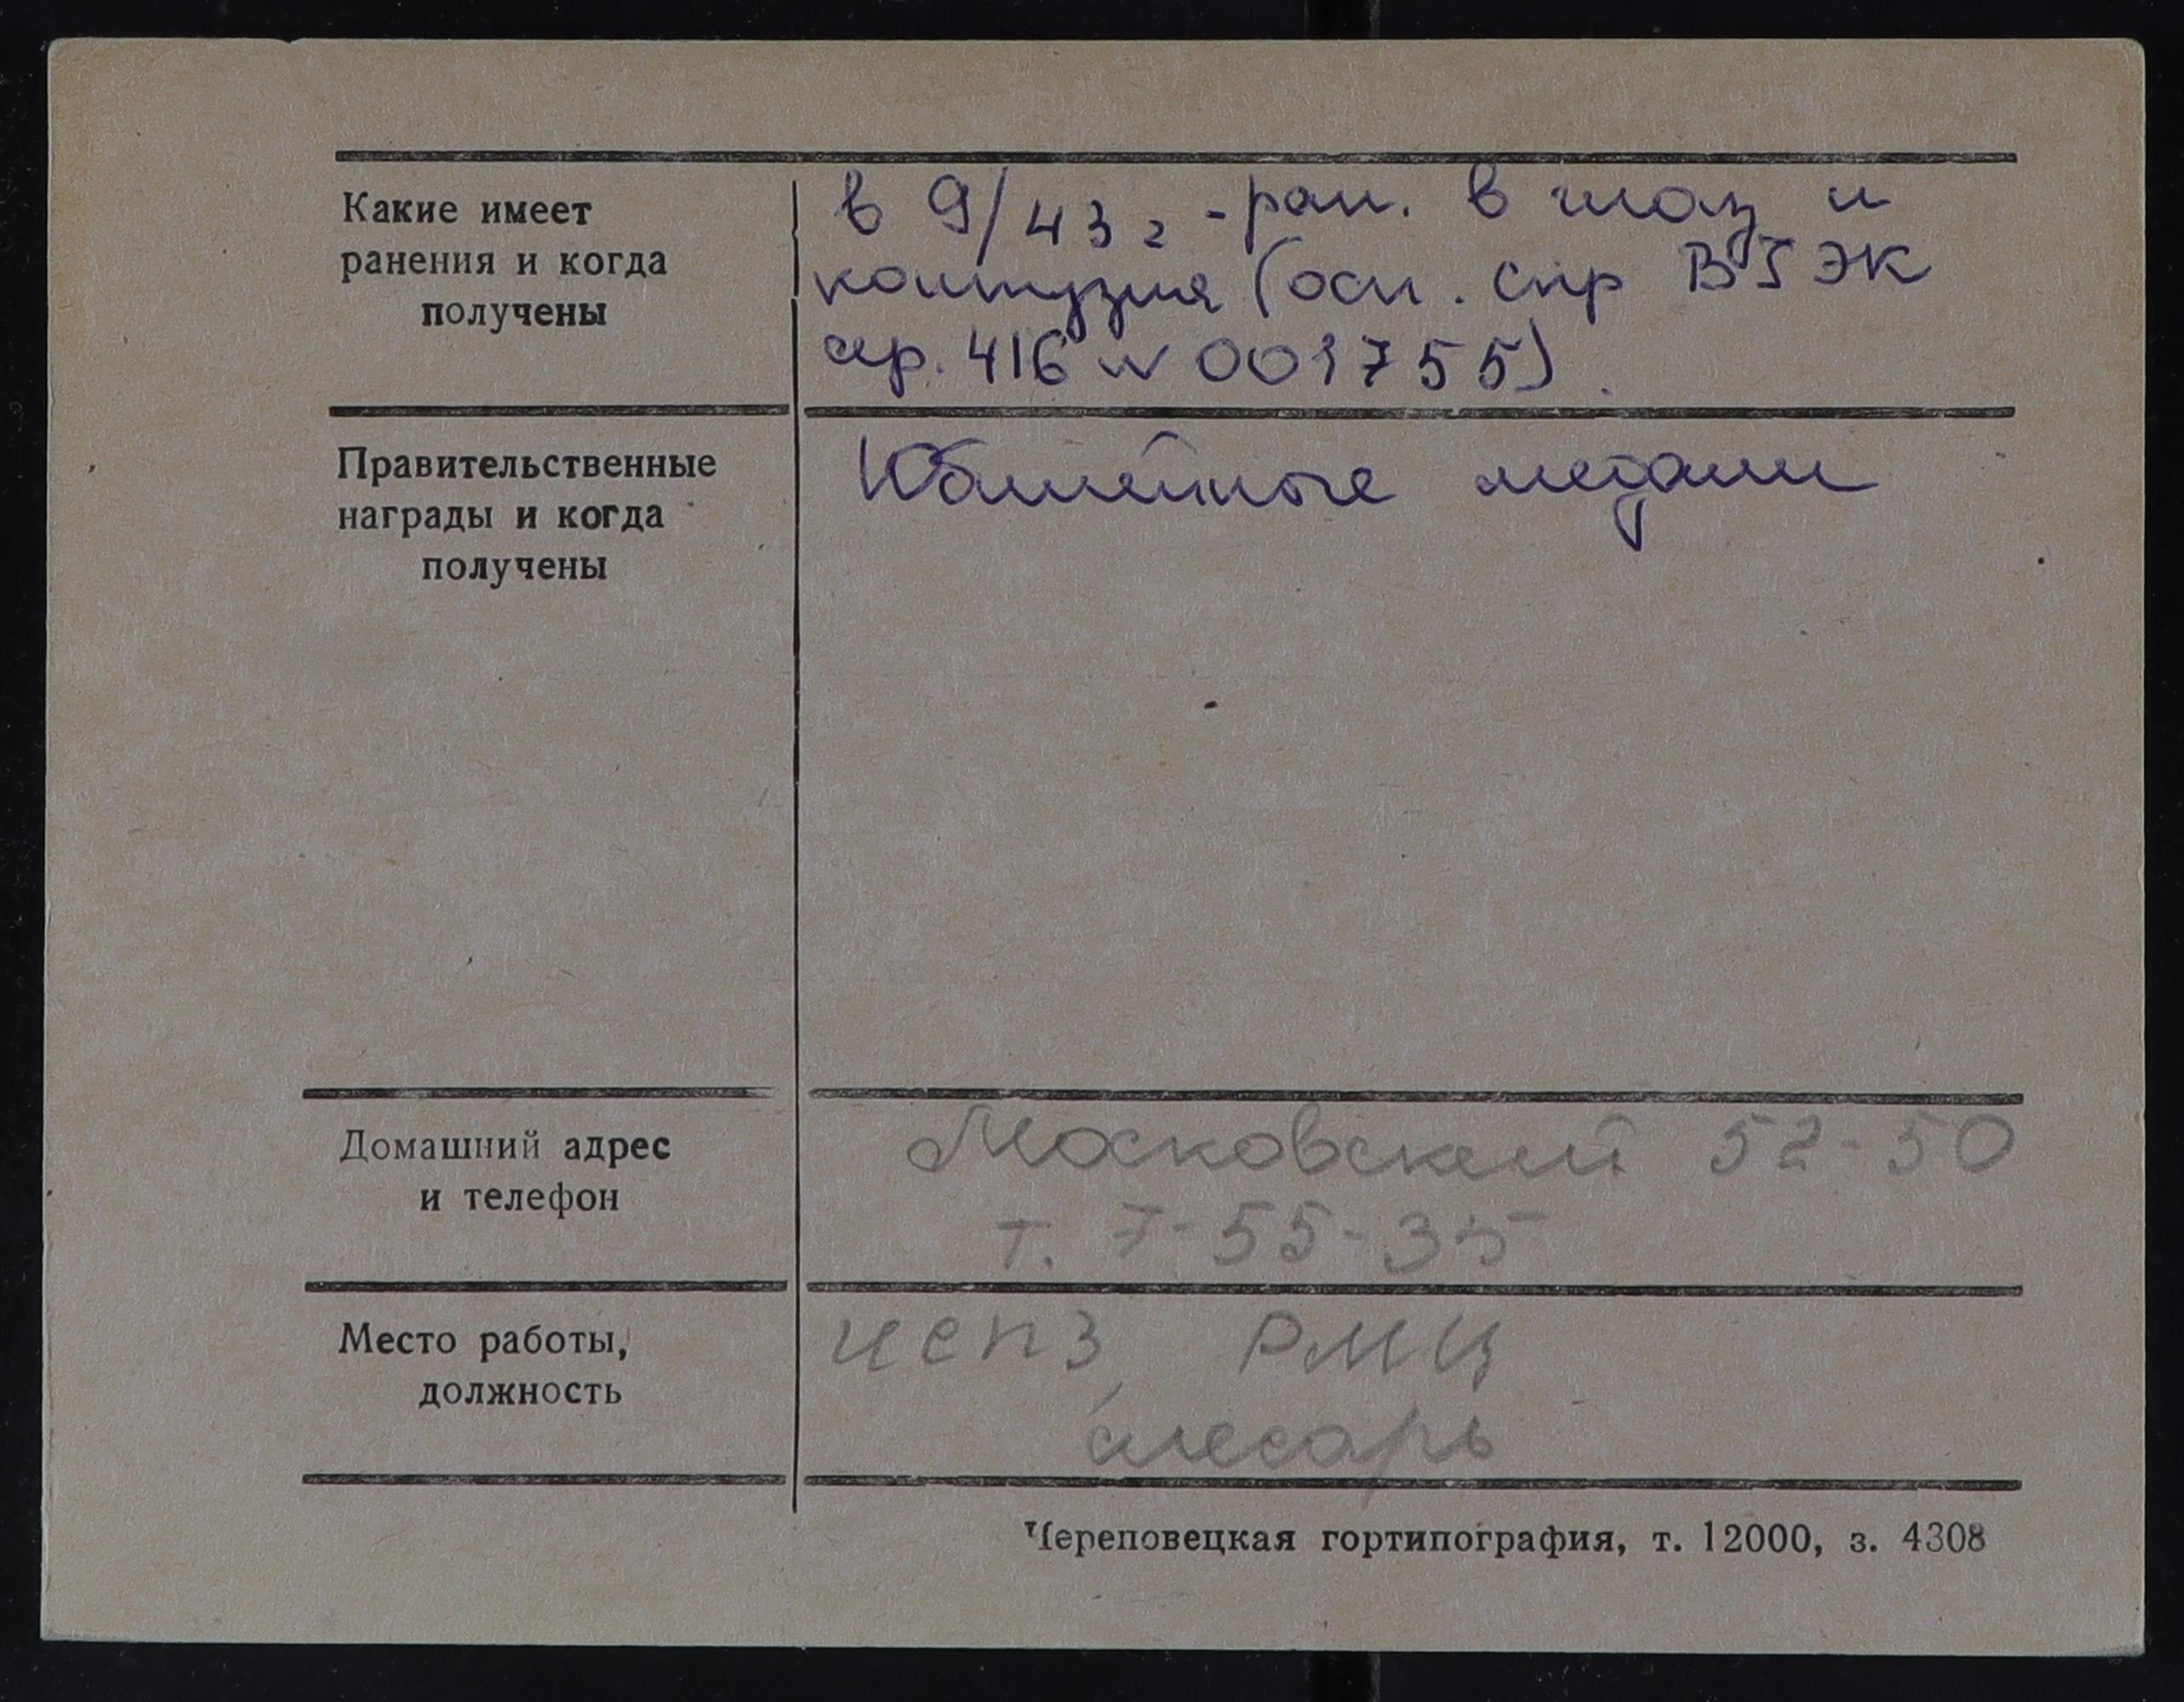 Какие имеет
ранения и когда
получены
в 9/43 г - ран. в глаз и
контузия (осн. спр ВТЭК
сер. 416 № 001755).
Правительственные
награды и когда
получены
Юбилейные медали
Домашний адрес
и телефон
Московский 52-50
т. 7-55-35
Место работы,
должность
ЧСПЗ РМЦ
слесарь
Череповецкая гортипография, т. 12000, з. 4308